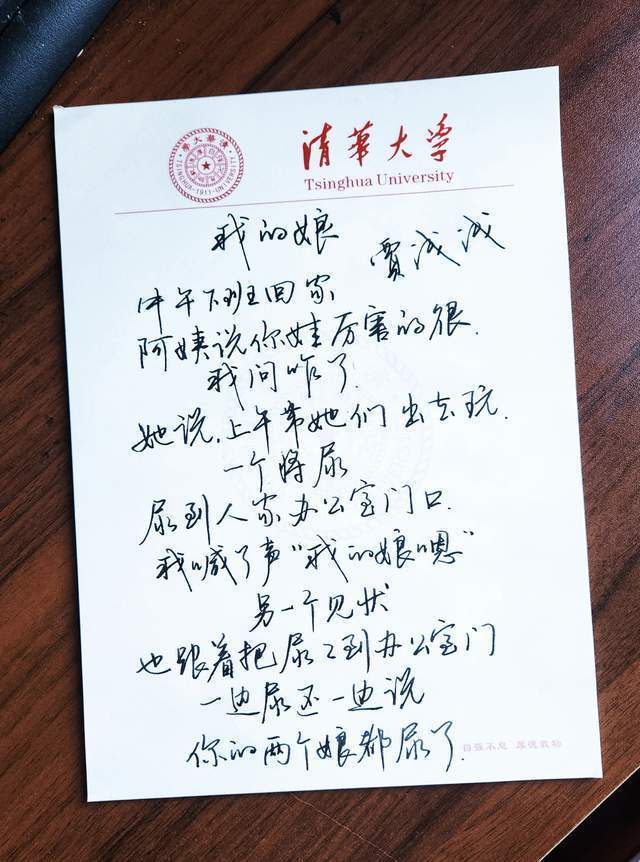 清华大学
Tsinghua University
TSINGHUA-1911-UNIVERSITY
我的娘
贾浅浅
中午下班回家
阿姨说你娃厉害的很.
我问咋了.
她说,上午带她们出去玩.
一个将尿
尿到人家办公室门口.
我喊了声“我的娘嗯”
另一个见状
也跟着把尿尿到办公室门
一边尿还一边说
你的两个娘都尿了.
自强不息 厚德载物